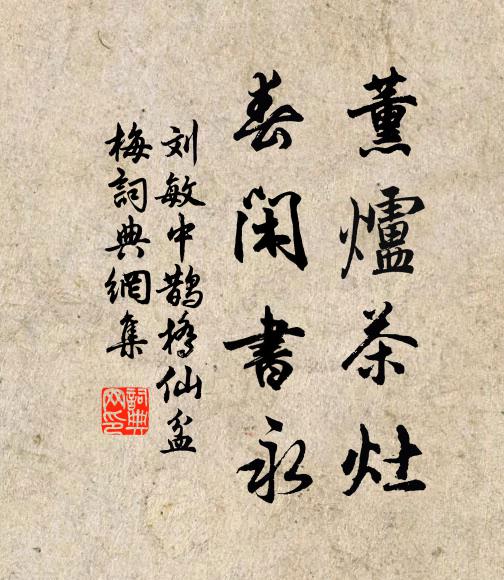 薰爐茶灶
春閑書永
刘敏中鹊橋仙盆
梅詞典網集
詞典
网印